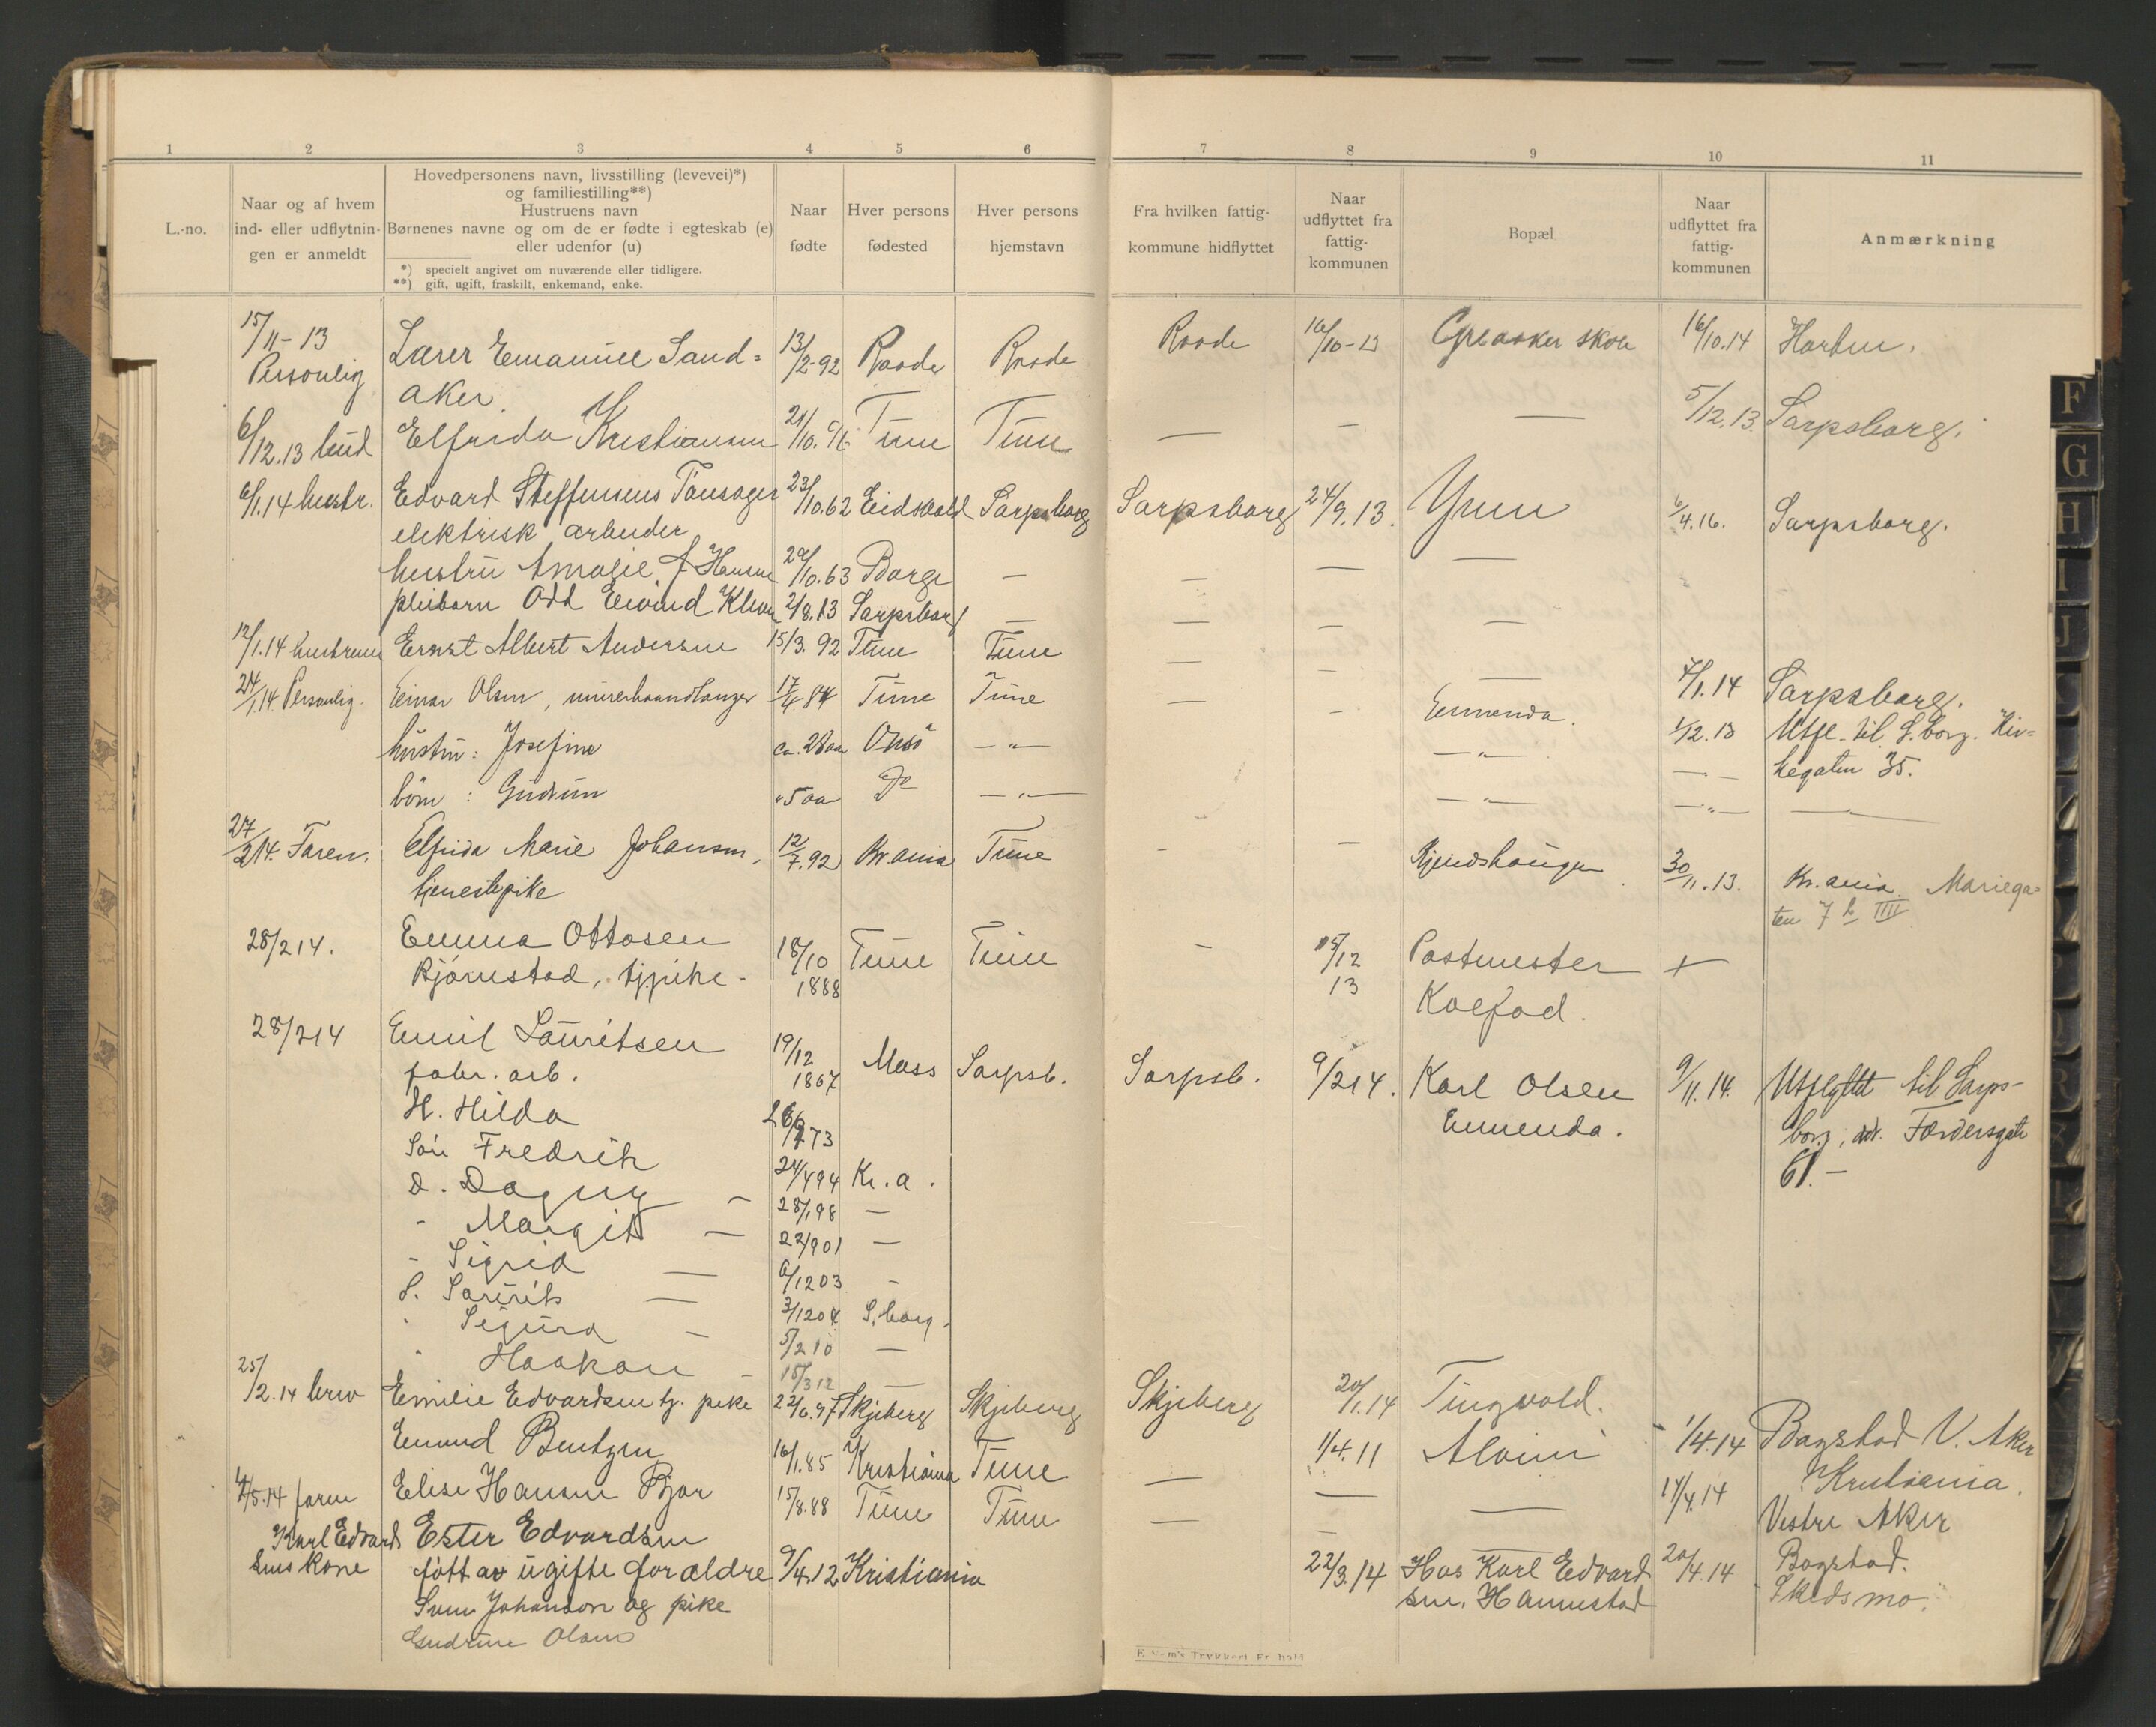 1 2 3 4 5 6 7 8 9 10 11
L.-no.
Naar og af hvem
ind- eller udflytnin-
gen er anmeldt
Hovedpersonens navn, livsstilling (levevei)*)
og familiestilling**)
Hustruens navn
Børnenes navne og om de er fødte i egteskab (e)
eller udenfor (u)
*) specielt angivet om nuværende eller tidligere.
**) gift, ugift, fraskilt, enkemand, enke.
Naar
fødte
Hver persons
fødested
Hver persons
hjemstavn
Fra hvilken fattig-
kommune hidflyttet
Naar
udflyttet fra
fattig-
kommunen
Bopæl
Naar
udflyttet fra
fattig-
kommunen
Anmærkning
15/11-13 Lærer Emanuel Sand= 13/2-92 Raade Raade Raade 16/10-13 Greaaker skole 16/10.14 Horten.
Personlig aker
6/12.13 bud Elfrida Kristiansen 21/10. Tune Tune — — — 5/12.13. Sarpsborg.
6/1.14 hustr. Edvard Steffensens 23/10.62 Eidsvold Sarpsborg Sarpsborg 24/9.13. Yven 6/4.16. Sarpsborg.
elektrisk arbeider
hustru Amalie f. Hansen 29/10.63 Borge — — — —
pleibarn Odd Eivind 2/8.13 Sarpsborg — — — —
12/1.14 hustruen Ernst Albert Andersen 15/3.92 Tune Tune — — — 7/1.14 Sarpsborg.
24/1.14 Personlig. Einar Olsen, murerhaandlanger 17/4 84 Tune Tune — - Enmenda. 1/12.13 Utfl. til S.borg. Kir=
hustru: Josefine ca. 28 aar Onsö —"— —"— —"— kegaten 35.
börn: Gudrun " 5 aar Do —"— —"— —"— —"—
27/2 14. Faren. Elfrida Marie Johansen, 12/7.92 Kr.ania Tune - — Kjendshaugen 30/11.13. Kr.ania. Mariega=
tjenestepike ten 7 b IIII
28/2 14. Emma Ottosen 18/10 Tune Tune - 15/12 Postmester +
Bjørnstad, tj.pike. 1888 13 Koefod.
28/2 14 Emil Lauritsen 19/12 Moss Sarpsb. Sarpsb. 9/2 14. Karl Olsen 9/11.14. Utflyttet til Sarps-
fabr. arb. 1867 Enmenda. borg, Færdersgate
H. Hilda 73 61.-
Sön Fredrik 24/4 94 Kr.a.
D. Dagny — 28/1 98 —
- Margit — 22/9 01 —
- Sigrid — 6/12 03 -
S. Laurits — 3/12 04 S.borg.
" Sigurd — 5/2 10 —
" Haakon - 15/3 12 —
25/2.14 brev Emilie Edvardsen tj. pike 22/6.97 Skjeberg Skjeberg Skjeberg 20/1.14 Tingvold.
Emund Bentzen 16/1.85 Kristiania Tune — 1/4.11 Alvim 1/4.14 Bogstad V. Aker
Kristiania.
4/5.14 faren Elise Hansen 15/8.88 Tune Tune — — — 14/4.14 Vestre Aker
Karl Edvard Ester Edvardsen Bogstad.
sens kone født av ugifte forældre 9/4.12 Kristiania 22/3.14 Hos Karl Edvard 20/4.14 Skedsmo.
Sven Johanson og pike sen. Hannestad
Gudrune Olsen